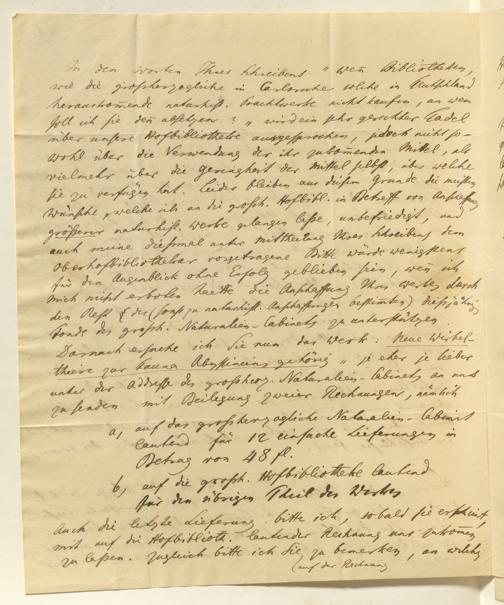 In den Worten Ihres Schreibens "wenn Bibliotheken,
wie die großherzogliche in Carlsruhe solche in Deutschland
herauskommende naturhist. Prachtwerke nicht kaufen, an wen
soll ich sie denn absetzen?" wird ein sehr gerechter Tadel
über unsere Hofbibliothek ausgesprochen, jedoch nicht so-
wohl über die Verwendung der ihr zukommenden Mittel, als
vielmehr über die Geringheit der Mittel selbst, über welche
sie zu verfügen hat. Leider bleiben aus diesem Grunde die meisten
Wünsche, welche ich an die großh. Hofbibl. in Betreff von
größerer naturhist. Werke gelangen lasse, unbefriedigt, und
auch meine diesmal unter Mittheilung Ihres Schreibens dem
Oberhofbibliothekar vorgetragene Bitte würde wenigstens
für den Augenblick ohne Erfolg geblieben sein, wenn ich
mich nicht erboten hätte die Anschaffung Ihres Werkes durch
den Rest des (sonst zu naturhist. Anschaffungen bestimmten) diesjährig
Fonds des großh. Naturalien-Cabinets zu unterstützen.
Darnach ersuche ich Sie nun das Werk: "Neue Wirbel-
thiere zur Fauna Abyssiniens gehörig" je eher je lieber
unter der Addresse des großherzog. Naturalien-Cabinets an uns
zu senden mit Beilegung zweier Rechnungen, nämlich
a, auf das großherzogliche Naturalien-Cabinet
lautend für 12 einfache Lieferungen im
Betrag von 48 fl.
b, auf die großh. Hofbibliothek lautend
für den übrigen Theil des Werkes
Auch die letzte Lieferung bitte ich, sobald sie erscheint,
mit auf die Hofbiblioth. lautender Rechnung uns zukommen
zu lassen. Zugleich bitte ich Sie zu bemerken, an welche
(auf der Rechnung